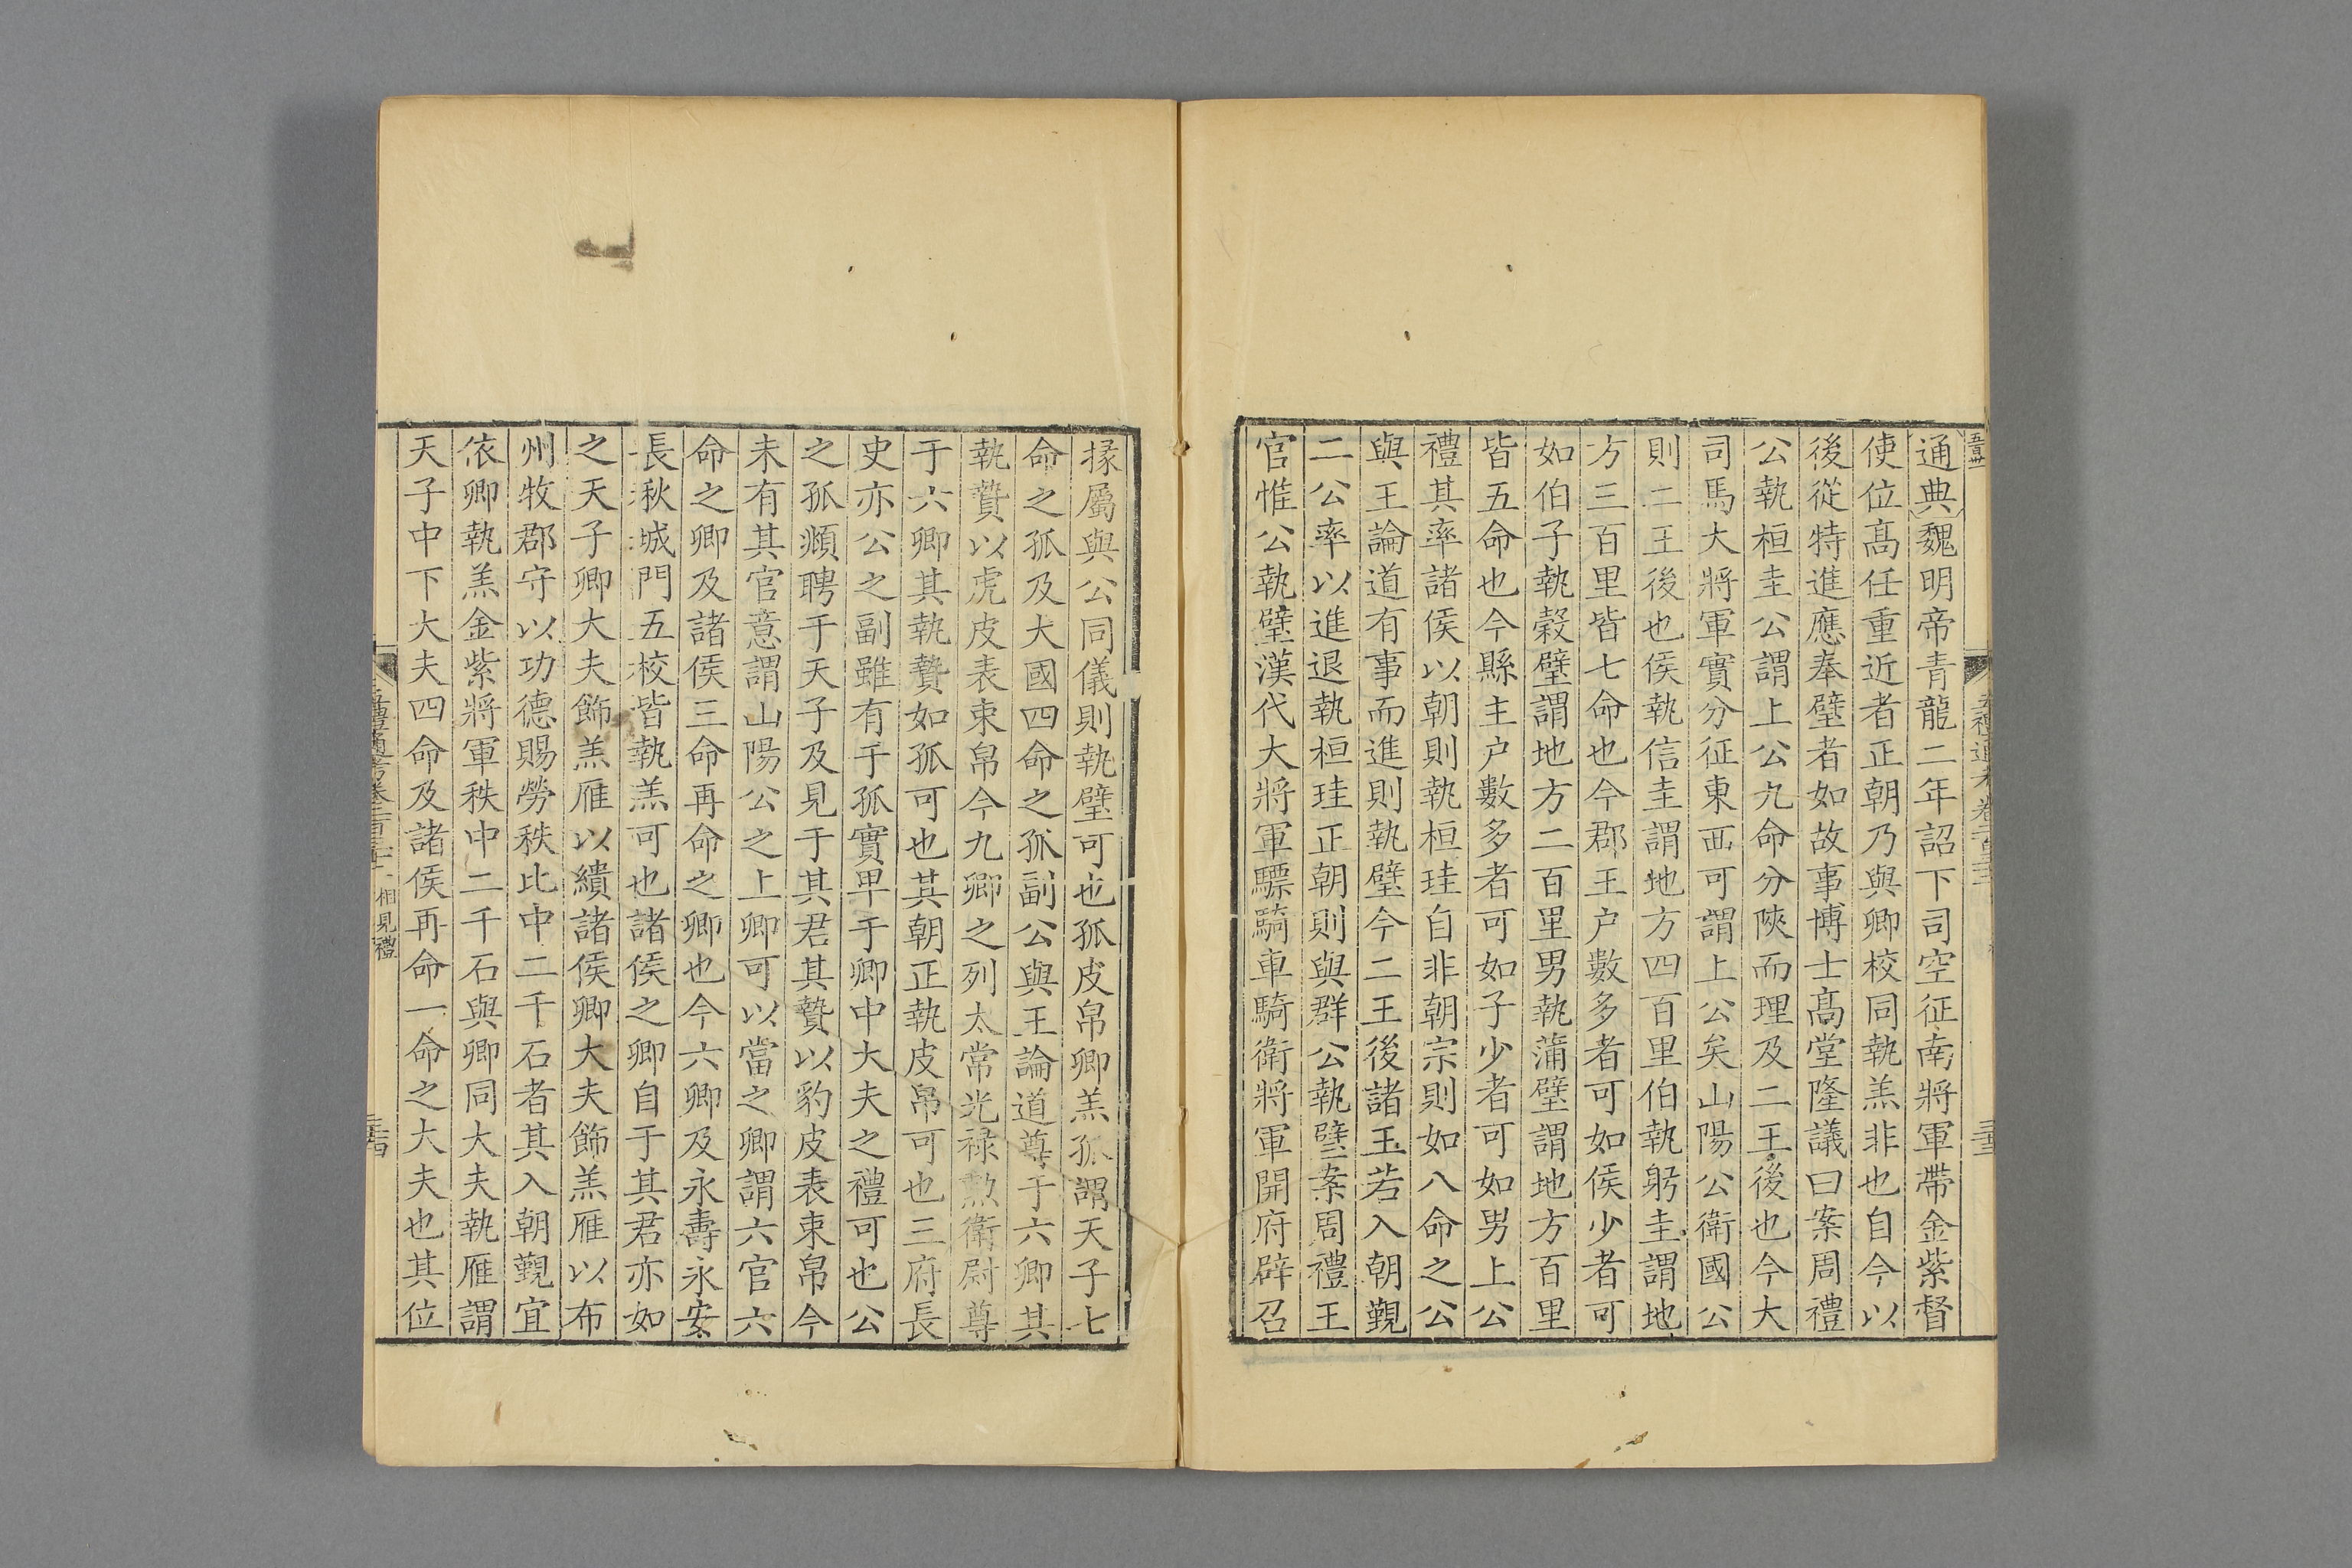 通典魏明帝青龍二年詔下司空征南將軍帶金紫督
使位髙任重近者正朝乃與卿校同執羔非也自今以
後從特進應奉璧者如故事博士髙堂隆議曰案周禮
公執桓圭公謂上公九命分陜而理及二王後也今大
司馬大將軍實分征東西可謂上公矣山陽公衛國公
則二王後也侯執信圭謂地方四百里伯執躬圭謂地
方三百里皆七命也今郡王户數多者可如侯少者可
如伯子執榖璧謂地方二百里男執蒲璧謂地方百里
皆五命也今縣主户數多者可如子少者可如男上公
禮其率諸侯以朝則執桓珪自非朝宗則如八命之公
與王論道有事而進則執璧今二王後諸王若入朝覲
二公率以進退執桓珪正朝則與群公執璧案周禮王
官惟公執璧漢代大將軍驃騎車騎衛將軍開府辟召
掾屬與公同儀則執璧可也孤皮帛卿羔孤謂天子七
命之孤及大國四命之孤副公與王論道尊于六卿其
執贄以虎皮表束帛今九卿之列太常光禄勲衛尉尊
于六卿其執贄如孤可也其朝正執皮帛可也三府長
史亦公之副雖有于孤實卑于卿中大夫之禮可也公
之孤頫聘于天子及見于其君其贄以豹皮表束帛今
未有其官意謂山陽公之上卿可以當之卿謂六官六
命之卿及諸侯三命再命之卿也今六卿及永壽永安
長秋城門五校皆執羔可也諸侯之卿自于其君亦如
之天子卿大夫飾羔雁以繢諸侯卿大夫飾羔雁以布
州牧郡守以功德賜勞秩比中二千石者其入朝覲宜
依卿執羔金紫將軍秩中二千石與卿同大夫執雁謂
天子中下大夫四命及諸侯再命一命之大夫也其位
相見禮